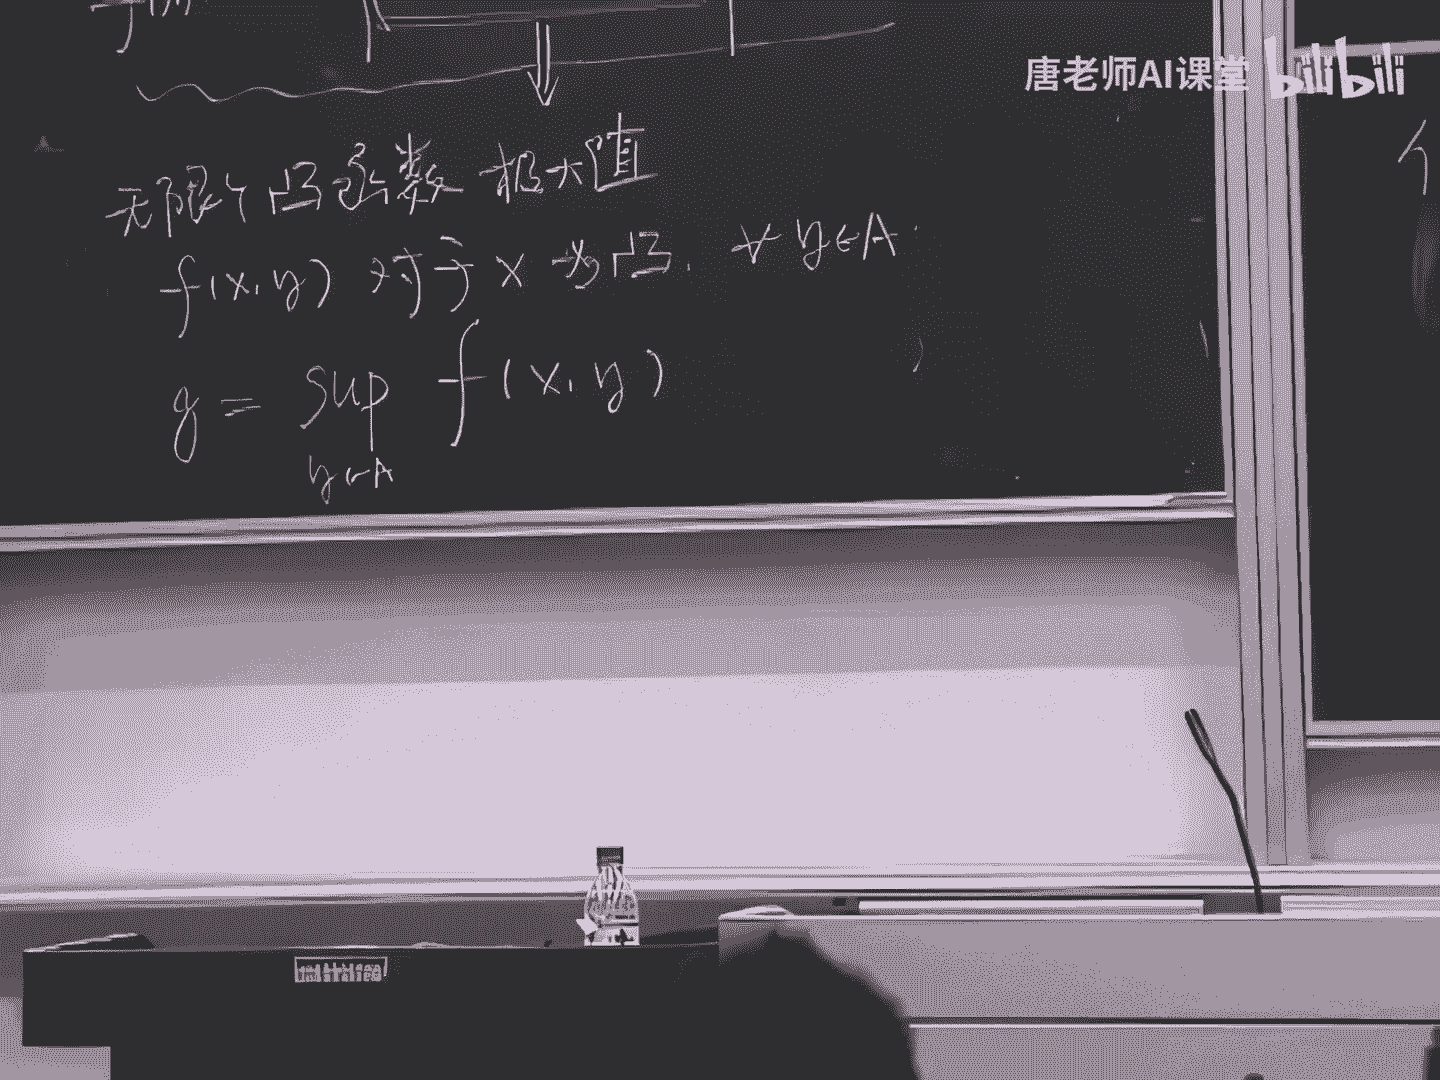 唐老师AI课堂 bilibili
无限个凸函数 极大值
f(x,y) 对于 x 为凸. ∀ y∈A.
g = sup f(x,y)
y∈A